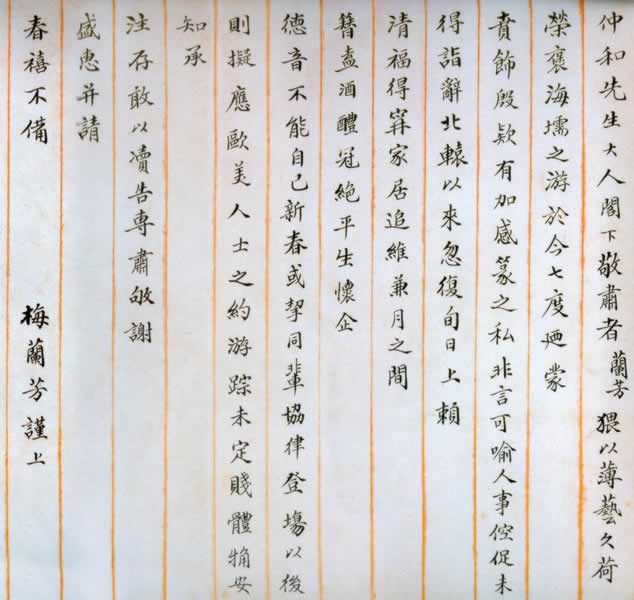 仲和先生大人閣下敬肅者蘭芳猥以薄藝久荷
榮褒海壖之游於今七度迺蒙
賁飾殷欵有加感篆之私非言可喻人事倥促未
得詣辭北轅以來忽復旬日上賴
清福得穽家居追維兼月之間
簪盍酒醴冠絕平生懷企
德音不能自已新春或挈同輩協律登塲以後
則擬應歐美人士之約游踪未定賤體觕安
知承
注存敢以瀆告專肅敬謝
盛惠并請
春禧不備
梅蘭芳謹上